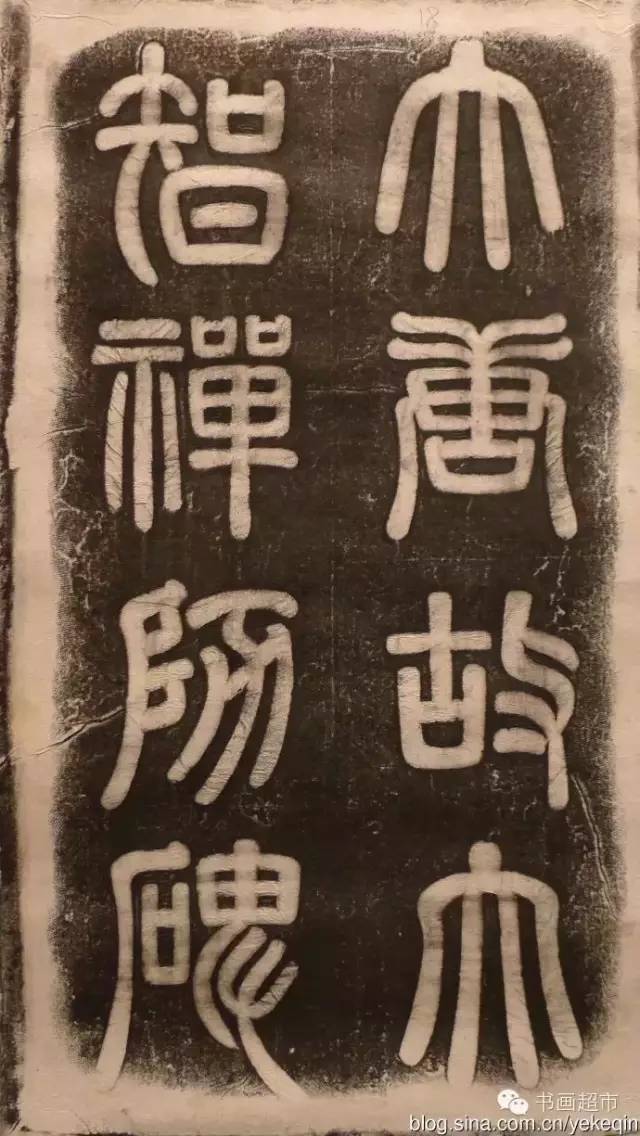 18
大唐故大
智禅師碑
书画超市
blog.sina.com.cn/yekeqin